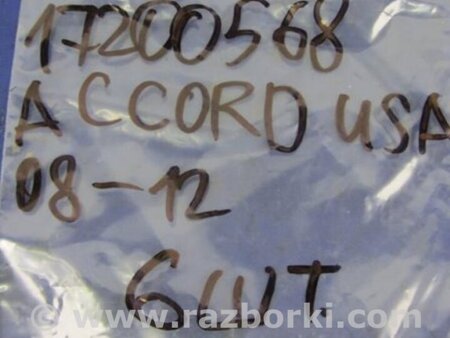 17200568
ACCORD USA
08-12
6ШТ
© - www.razborki.com